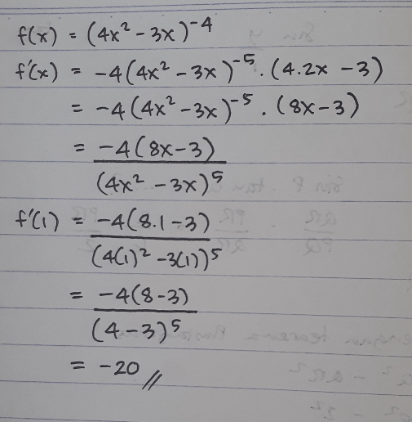 f(x) = (4x² - 3x)⁻⁴
f'(x) = -4(4x² - 3x)⁻⁵ · (4.2x - 3)
= -4(4x² - 3x)⁻⁵ · (8x - 3)
= -4(8x-3) / (4x² - 3x)⁵
f'(1) = -4(8.1-3) / (4(1)² - 3(1))⁵
= -4(8-3) / (4-3)⁵
= -20 //